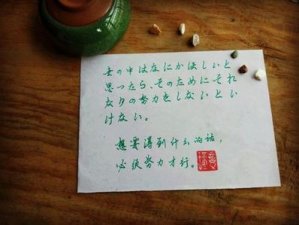 世の中はなにかほしいと
思つたら、そのためにそれ
なりの努力をしないとい
けない。
想要得到什么的话，
必须努力才行。